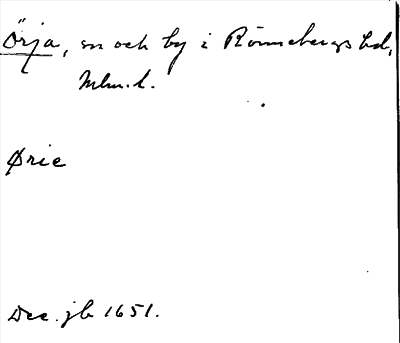 Örja, sn och by i Rönnebergs hd,
Mlm. l.
Ørie
Dec. jb 1651.